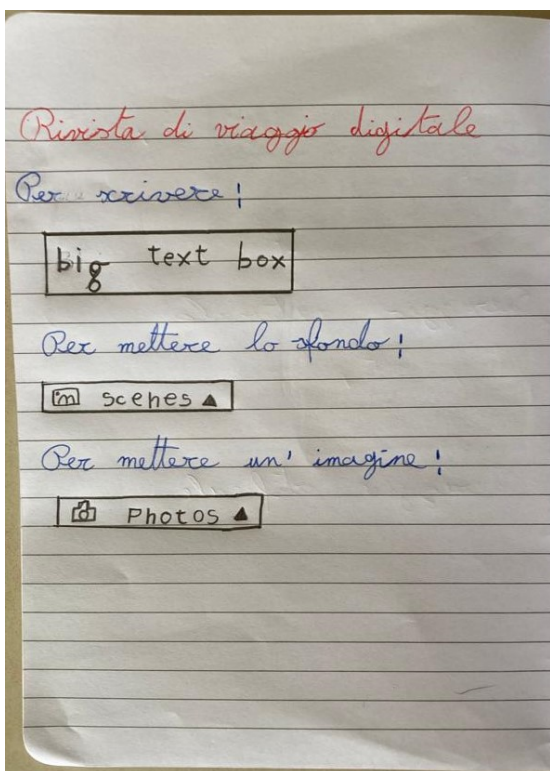 Rivista di viaggio digitale
Per scrivere!
big text box
Per mettere lo sfondo!
scenes ▲
Per mettere un' imagine!
Photos ▲